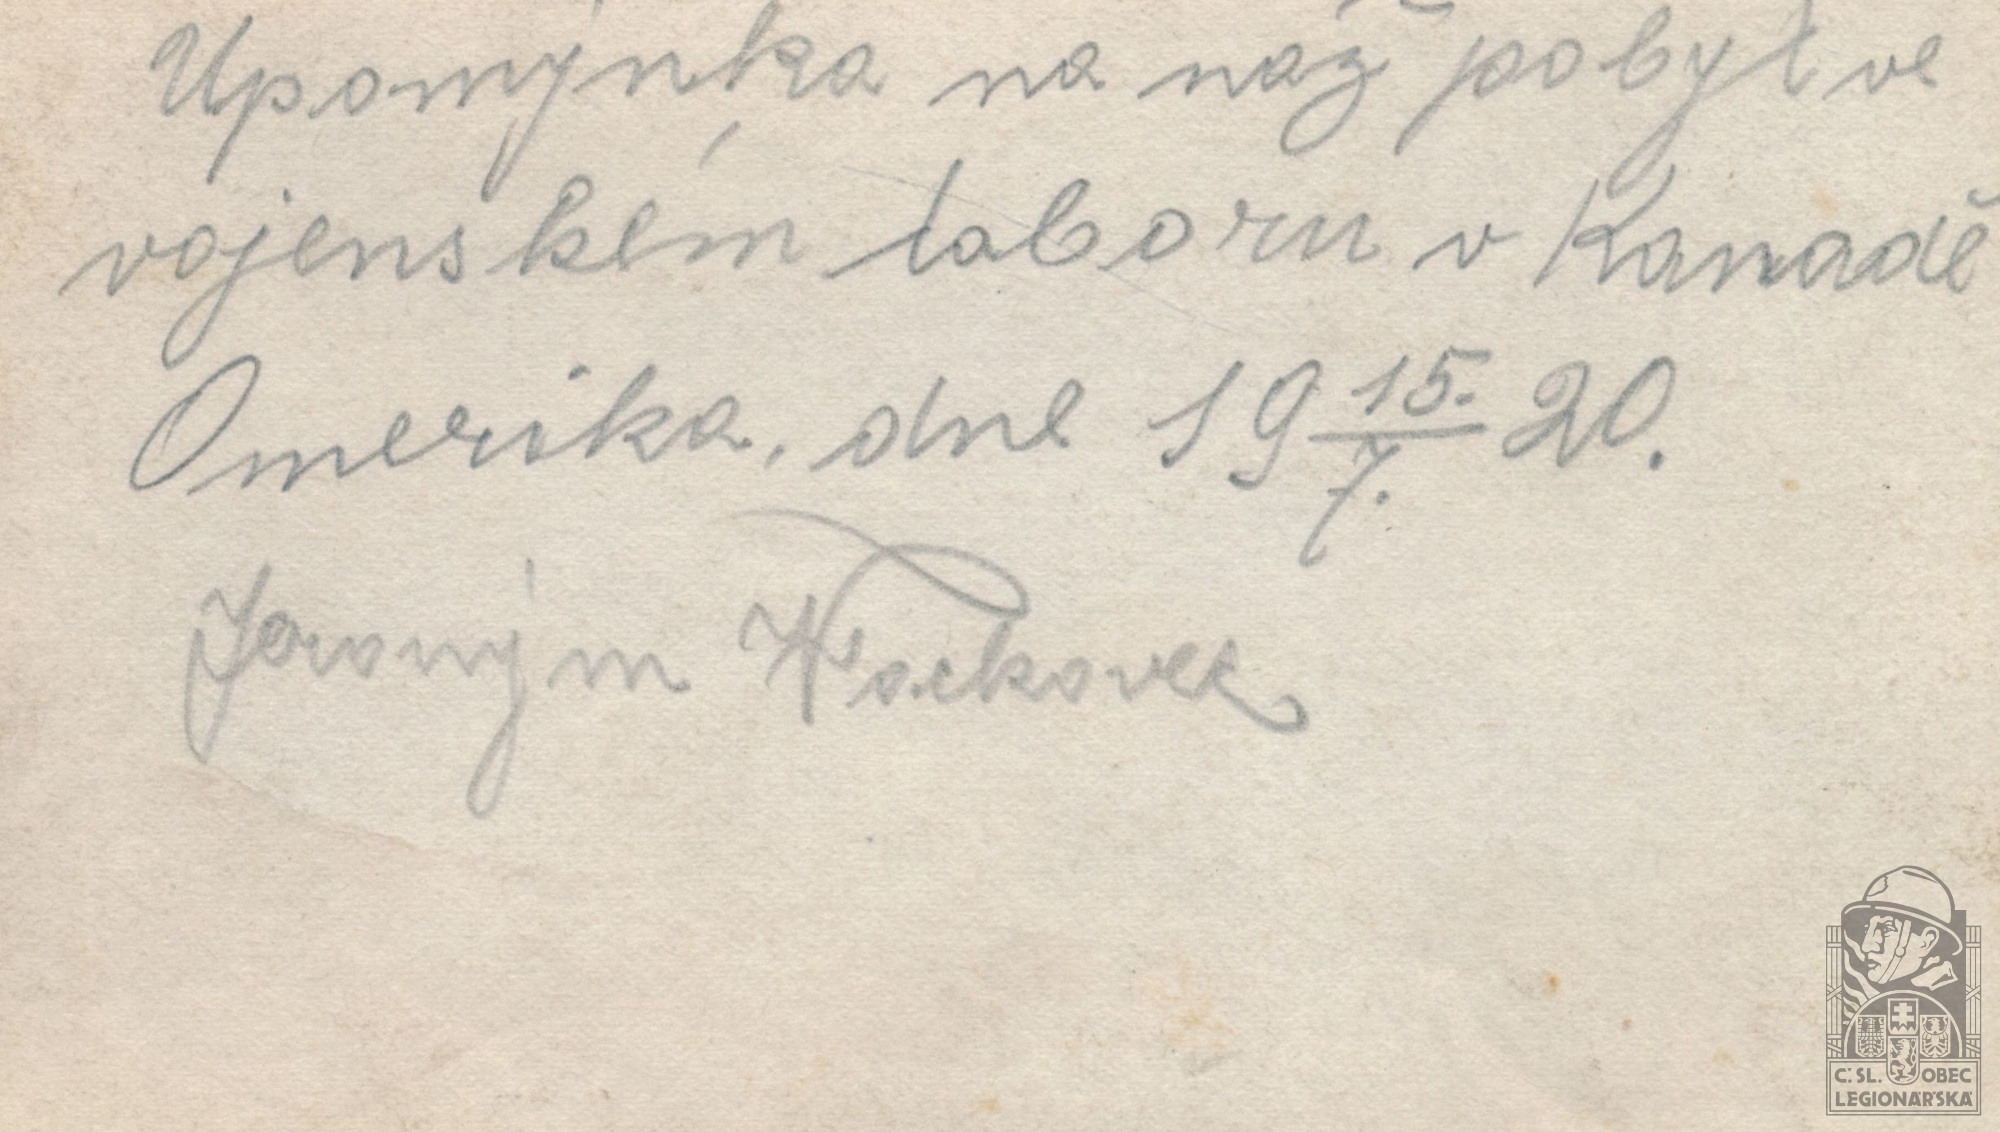 Upomýnka na náž pobyt ve
vojenském táboru v Kanadě
Amerika, dne 19 15./7. 20.
Jeroným
C.SL. OBEC
LEGIONÁŘSKÁ